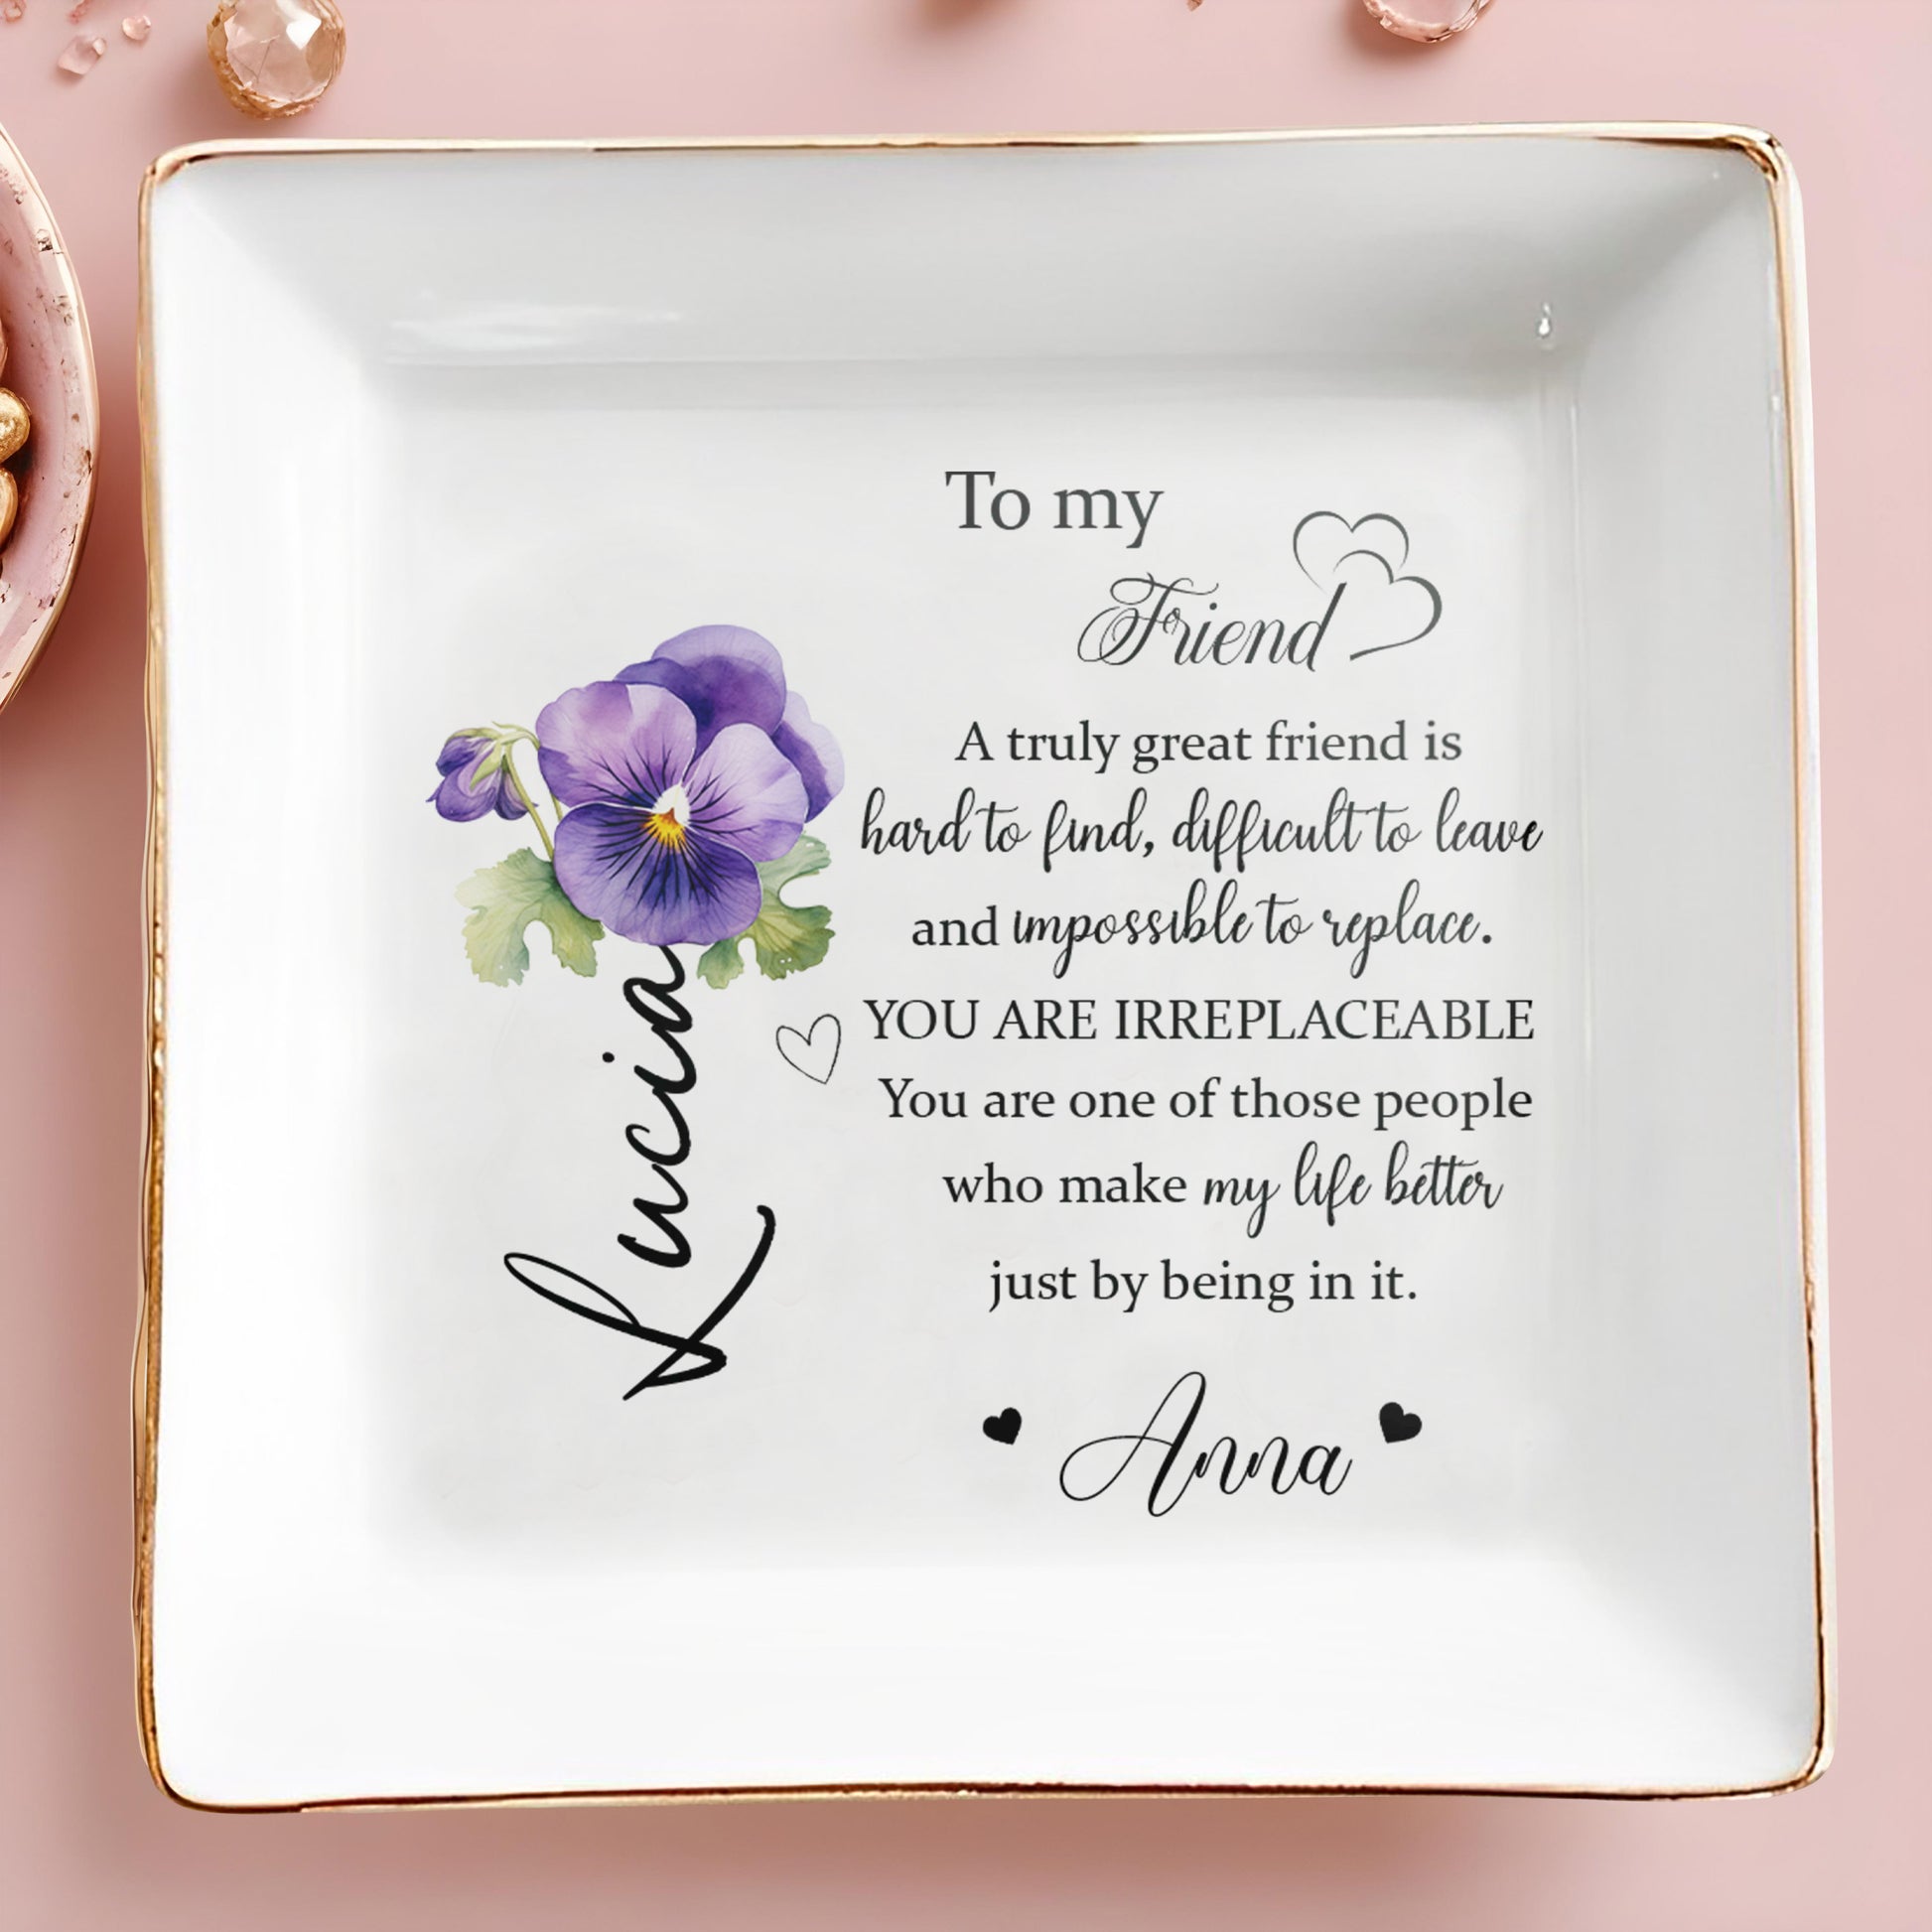 To my
Friend
A truly great friend is
hard to find, difficult to leave
and impossible to replace.
YOU ARE IRREPLACEABLE
You are one of those people
who make my life better
just by being in it.
Anna
Lucia